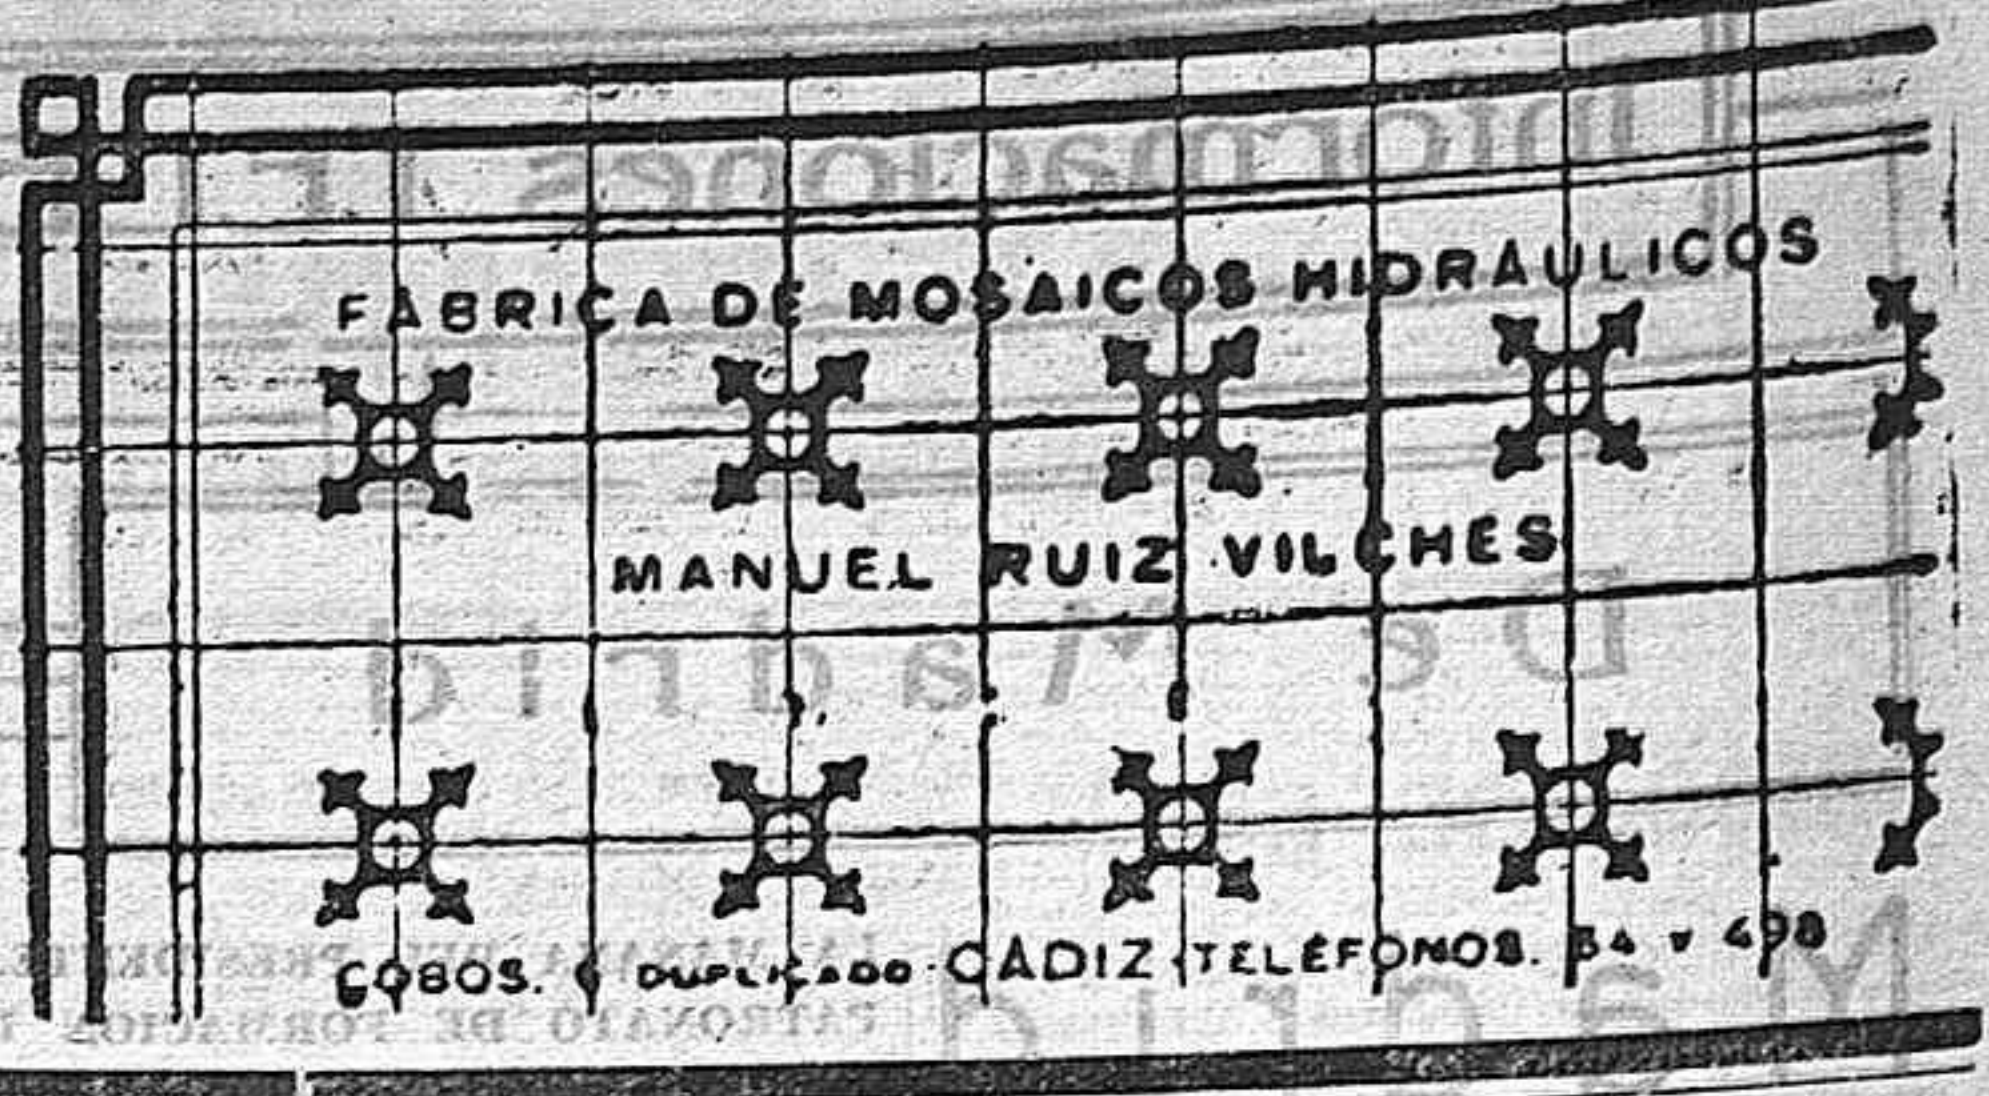 FABRICA DE MOSAICOS HIDRAULICOS
MANUEL RUIZ VILCHES
COBOS. DUPLICADO · CADIZ · TELÉFONOS. 34 Y 498